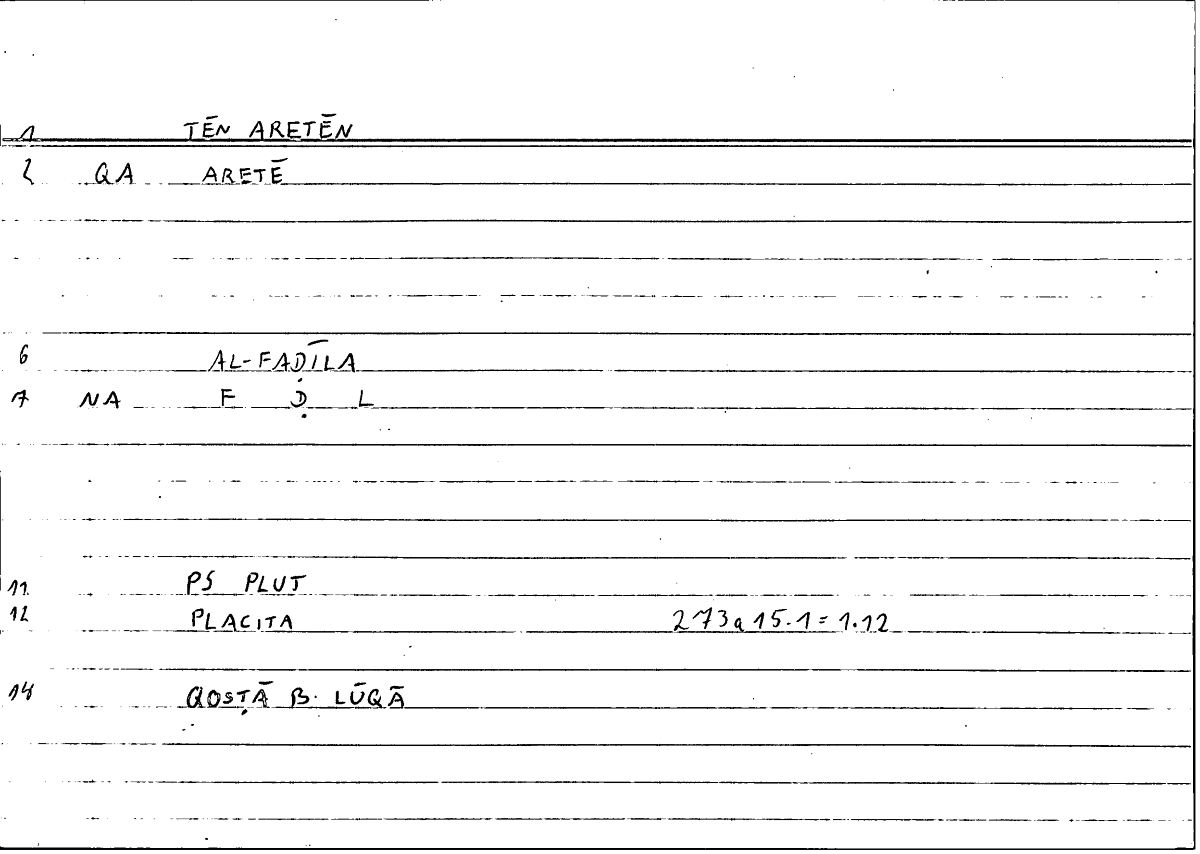 1 TĒN ARETĒN
2 QA ARETĒ
6 AL-FAḌĪLA
7 NA F Ḍ L
11 PS PLUT
12 PLACITA 273a 15.1 = 1.12
14 QOSṬĀ B. LŪQĀ